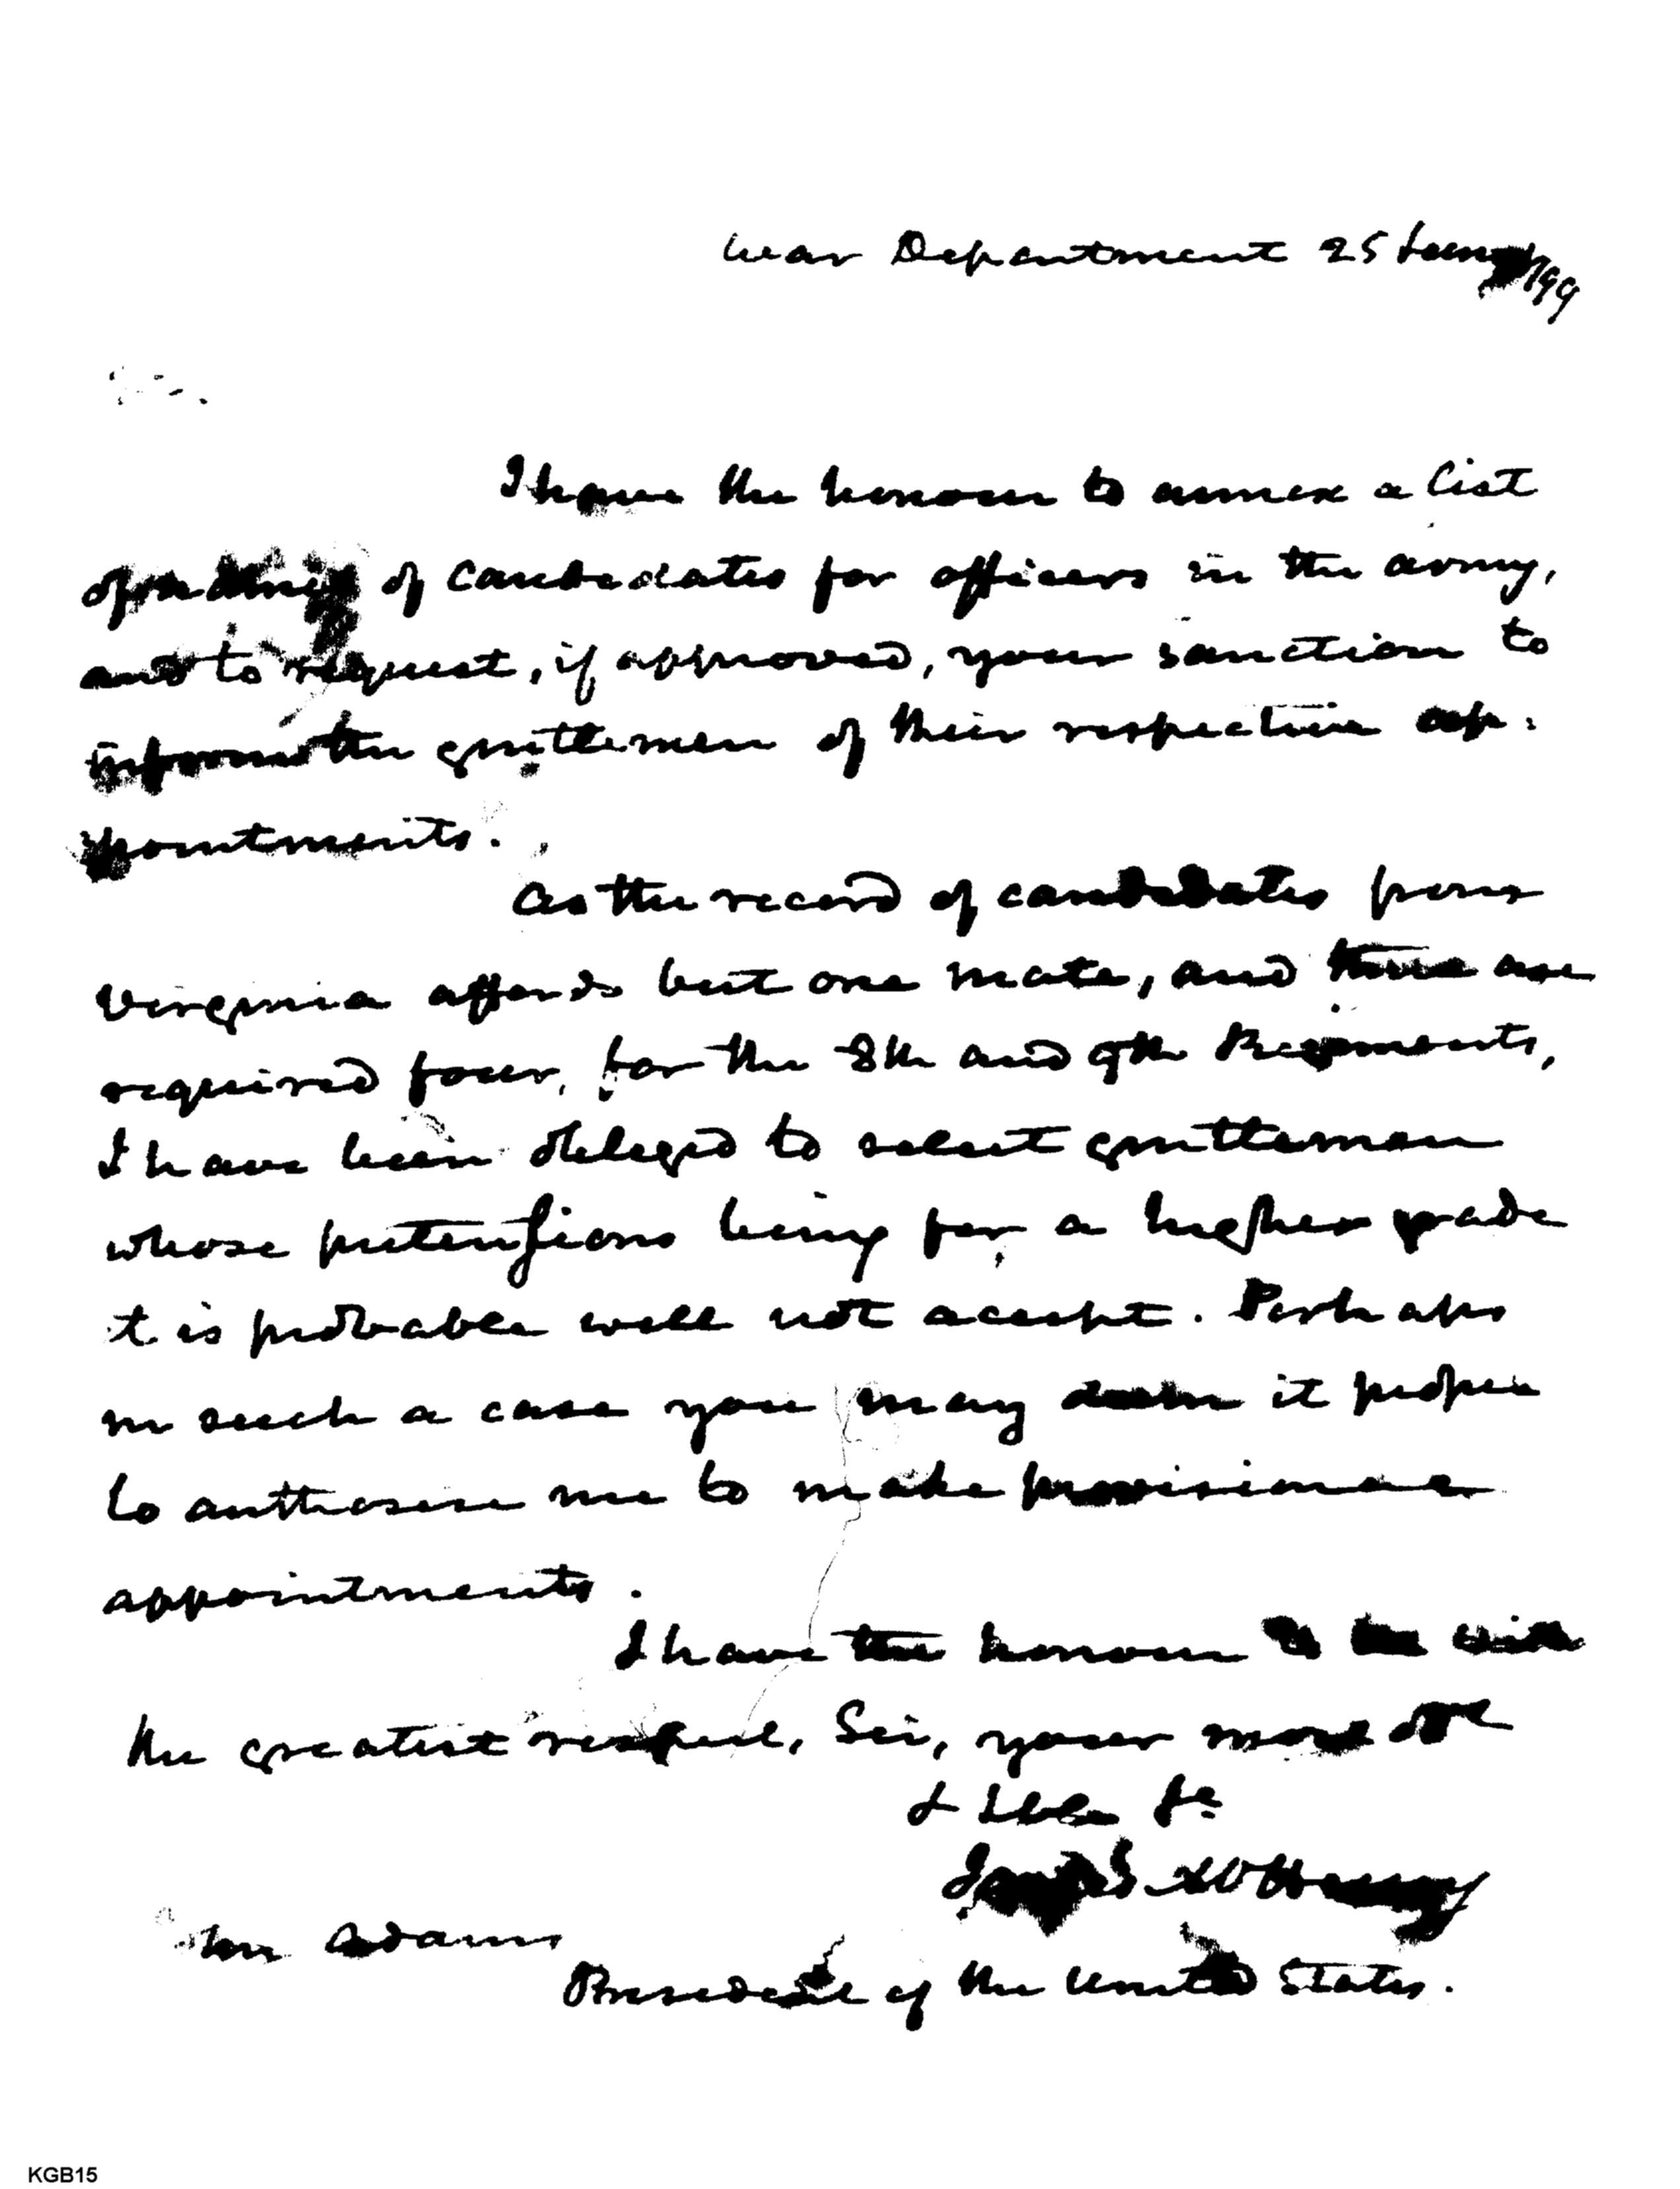 War Department 25 1799
I have the honour to annex a list
of candidates for officers in the army,
and to request, if approved, your sanction to
inform the gentlemen of their respective ap:
pointments.
As the record of candidates from
Virginia affords but one mate, and there are
required four, for the 8th and 9th Regiments,
I have been obleged to select gentlemen
whose pretensions being for a higher grade
it is probable will not accept. Perhaps
in such a case you may deem it proper
to authorise me to make provisional
appointments.
I have the honour to be with
the greatest respect, Sir, your most obt
& hble St
James McHenry
John Adams
President of the United States.
KGB15